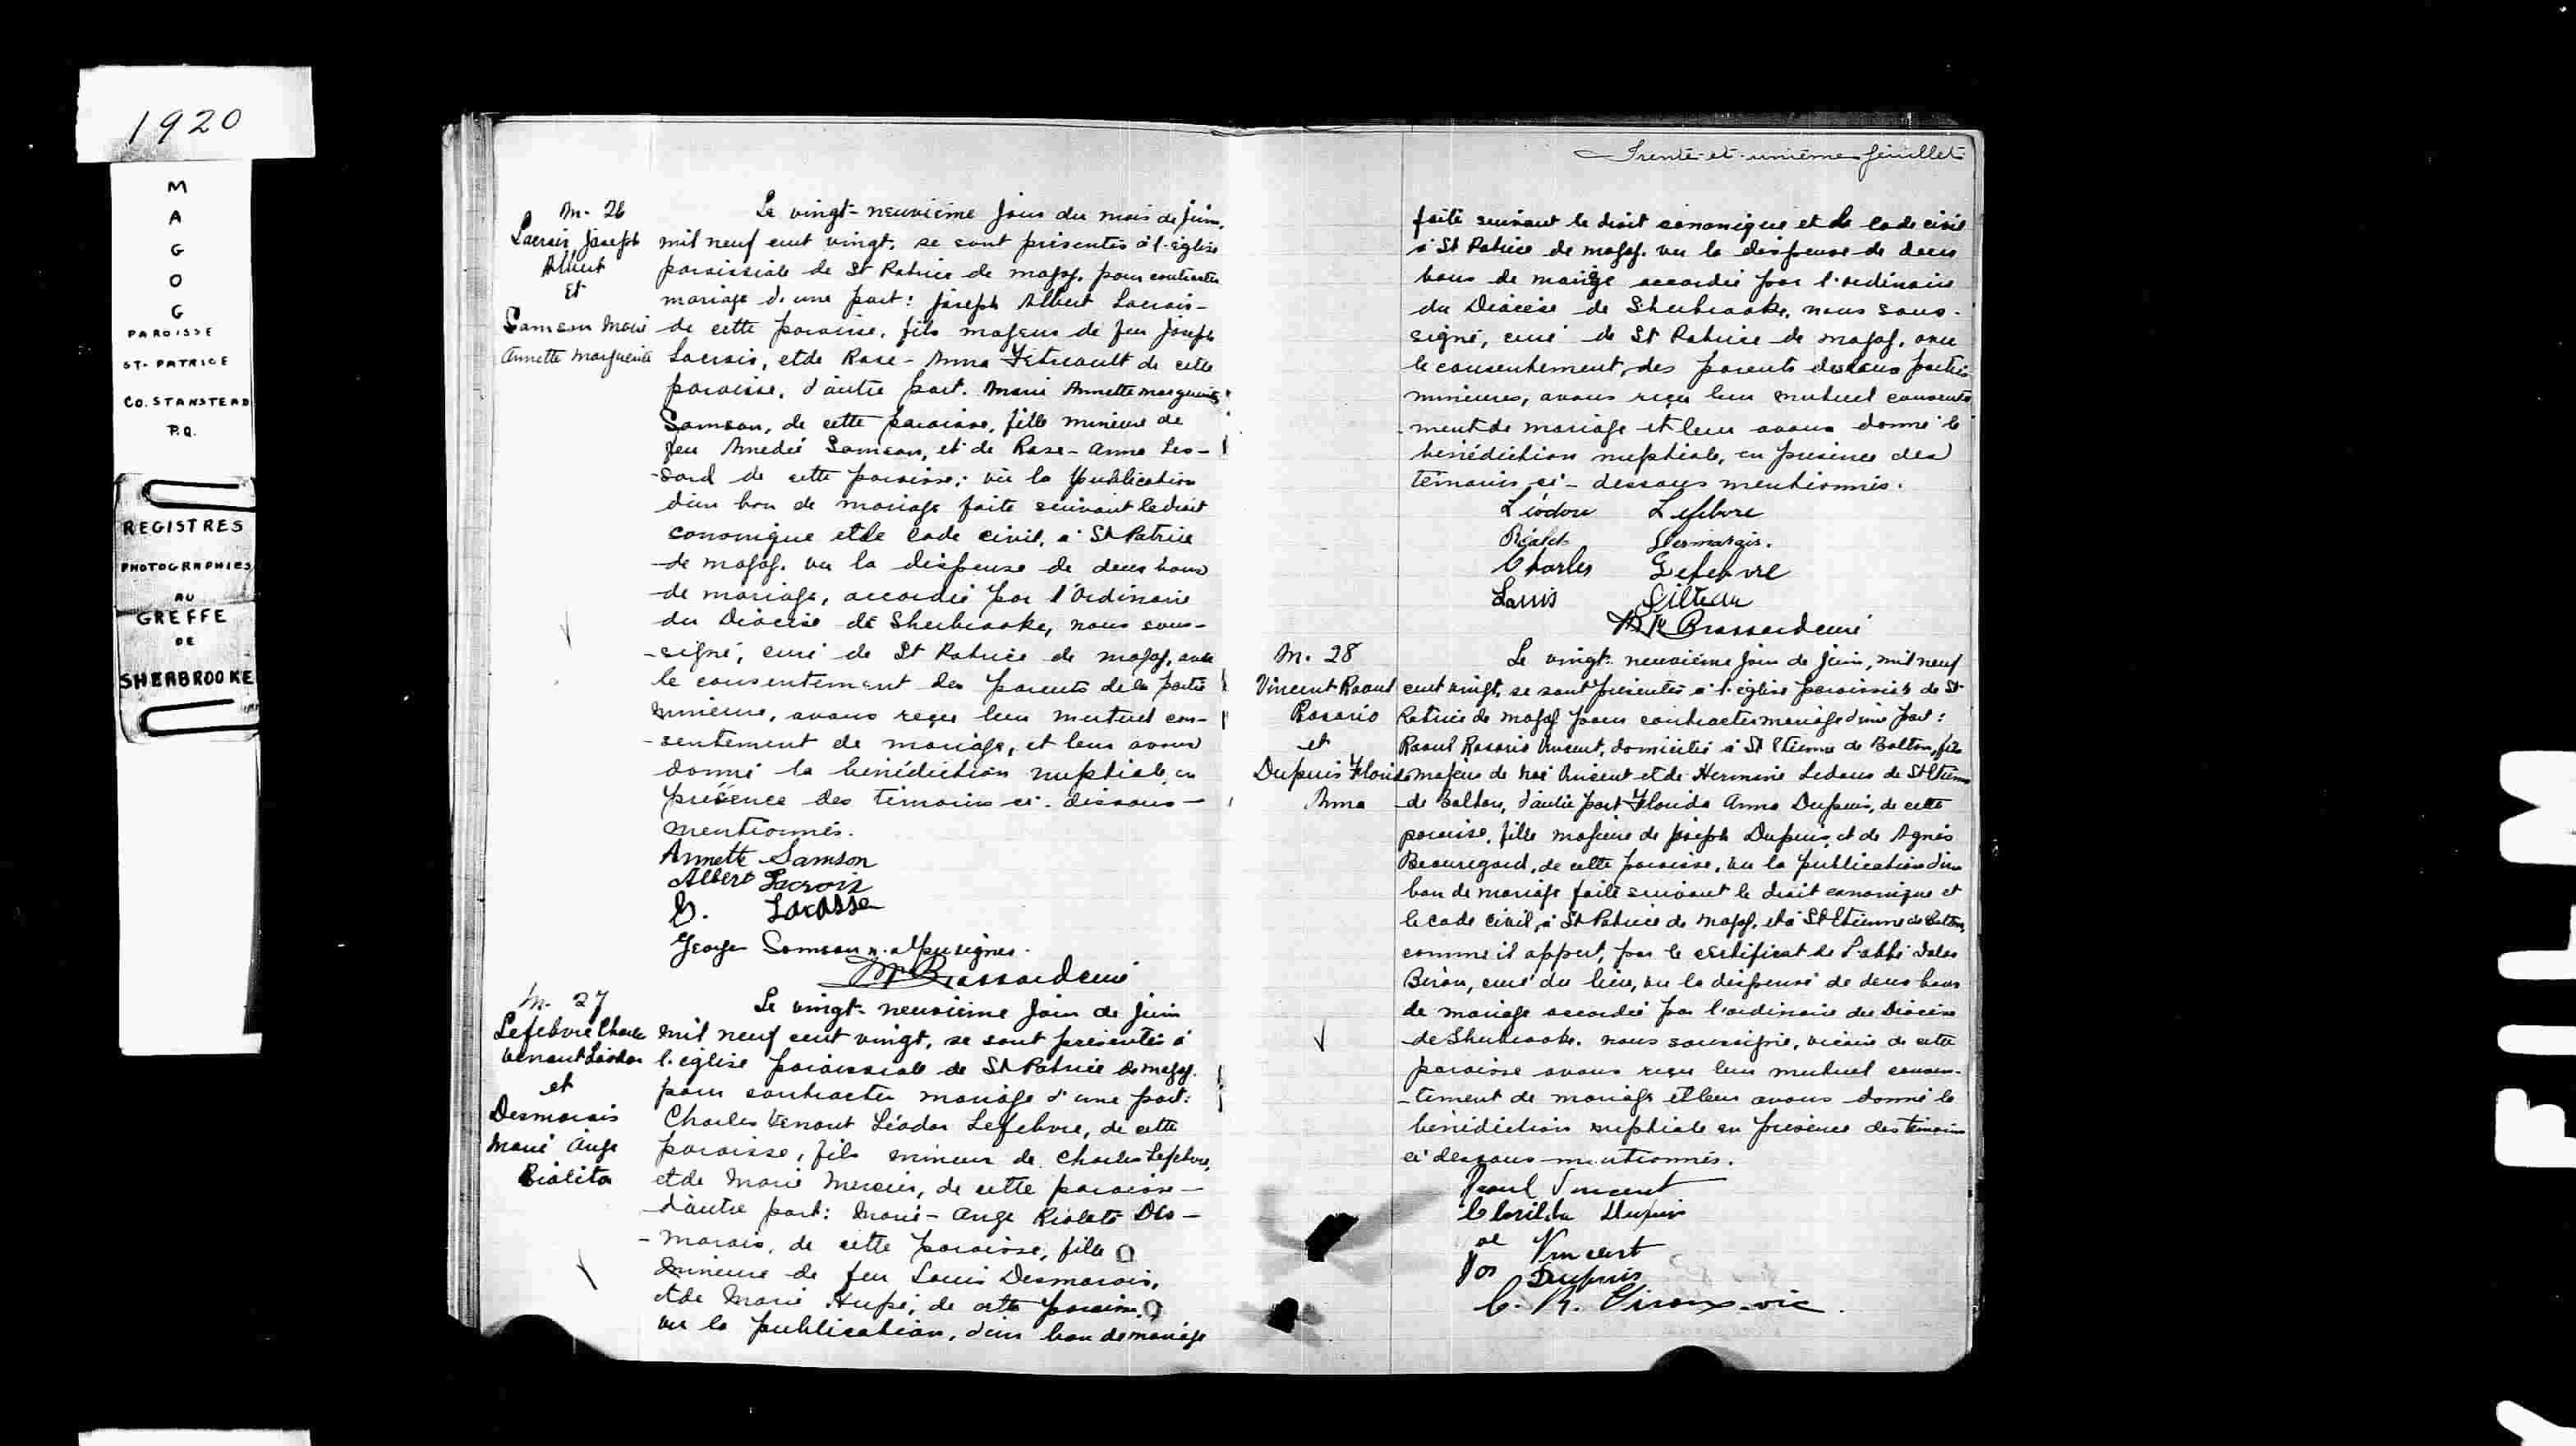 1920
M
A
G
O
G
PAROISSE
ST-PATRICE
CO. STANSTEAD
P.Q.
REGISTRES
PHOTOGRAPHIES
AU
GREFFE
DE
SHERBROOKE
M. 26
Lacroix, Joseph
Albert
et
Samson Marie
Annette Marguerite
Le vingt-neuvième jour du mois de juin,
mil neuf cent vingt, se sont présentés à l'église
paroissiale de St Patrice de Magog, pour contracter
mariage d'une part: Joseph Albert Lacroix-
de cette paroisse, fils majeur de feu Joseph
Lacroix, et de Rose-Anna Tétreault de cette
paroisse, d'autre part. Marie Annette Marguerite
Samson, de cette paroisse, fille mineure de
feu Amedée Samson, et de Rose-Anna Les-
-sard de cette paroisse; vu la publication
d'un ban de mariage faite suivant le droit
canonique et le code civil, à St Patrice
de Magog. vu la dispense de deux bans
de mariage, accordée par l'Ordinaire
du Diocèse de Sherbrooke, nous sous-
-signé, curé de St Patrice de Magog, avec
le consentement des parents de la partie
mineure, avons reçu leur mutuel con-
-sentement de mariage, et leur avons
donné la bénédiction nuptiale, en
présence des témoins ci-dessous-
mentionnés.
Annette Samson
Albert Lacroix
Lacasse
George Samson n. a pu signer.
Brassard curé
M. 27
Lefebvre Charles
Venant Léodor
et
Desmarais
Marie Ange
Rialita
Le vingt-neuvième jour de juin
mil neuf cent vingt, se sont présentés à
l'église paroissiale de St Patrice de Magog.
pour contracter mariage d'une part:
Charles Venant Léodor Lefebvre, de cette
paroisse, fils mineur de Charles Lefebvre,
et de Marie Mercier, de cette paroisse-
d'autre part: Marie-Ange Rialita Des-
-marais, de cette paroisse, fille
mineure de feu Louis Desmarais,
et de Marie Hupé, de cette paroisse
vu la publication, d'un ban de mariage
Trente-et-unième feuillet
faite suivant le droit canonique et le code civil
à St Patrice de Magog. vu la dispense de deux
bans de mariage accordée par l'ordinaire
du Diocèse de Sherbrooke, nous sous-
signé, curé de St Patrice de Magog, avec
le consentement, des parents des deux parties
mineures, avons reçu leur mutuel consente
-ment de mariage et leur avons donné la
bénédiction nuptiale, en présence des
témoins ci-dessous mentionnés.
Léodore Lefebvre
Desmarais.
Charles Lefebvre
Louis
Brassard curé
M. 28
Vincent Raoul
Rosario
et
Dupuis Florida
Anna
Le vingt-neuvième jour de juin, mil neuf
cent vingt, se sont présentés à l'église paroissiale de St-
Patrice de Magog pour contracter mariage d'une part:
Raoul Rosario Vincent, domicilié à St Etienne de Bolton, fils
majeur de Noé Vincent et de Hermine Ledoux de St Etienne
de Bolton, d'autre part Florida Anna Dupuis, de cette
paroisse, fille majeure de Joseph Dupuis, et de Agnès
Beauregard, de cette paroisse, vu la publication d'un
ban de mariage faite suivant le droit canonique et
le code civil, à St Patrice de Magog, et à St Etienne de Bolton,
comme il appert, par le certificat de l'abbé
Biron, curé du lieu, vu la dispense de deux bans
de mariage accordée par l'ordinaire du Diocèse
de Sherbrooke. nous soussigné, vicaire de cette
paroisse avons reçu leur mutuel consen-
-tement de mariage et leur avons donné la
bénédiction nuptiale en présence des témoins
ci dessous mentionnés.
Raoul Vincent
Dupuis
Vincent
Jos Dupuis
vic.
FILM